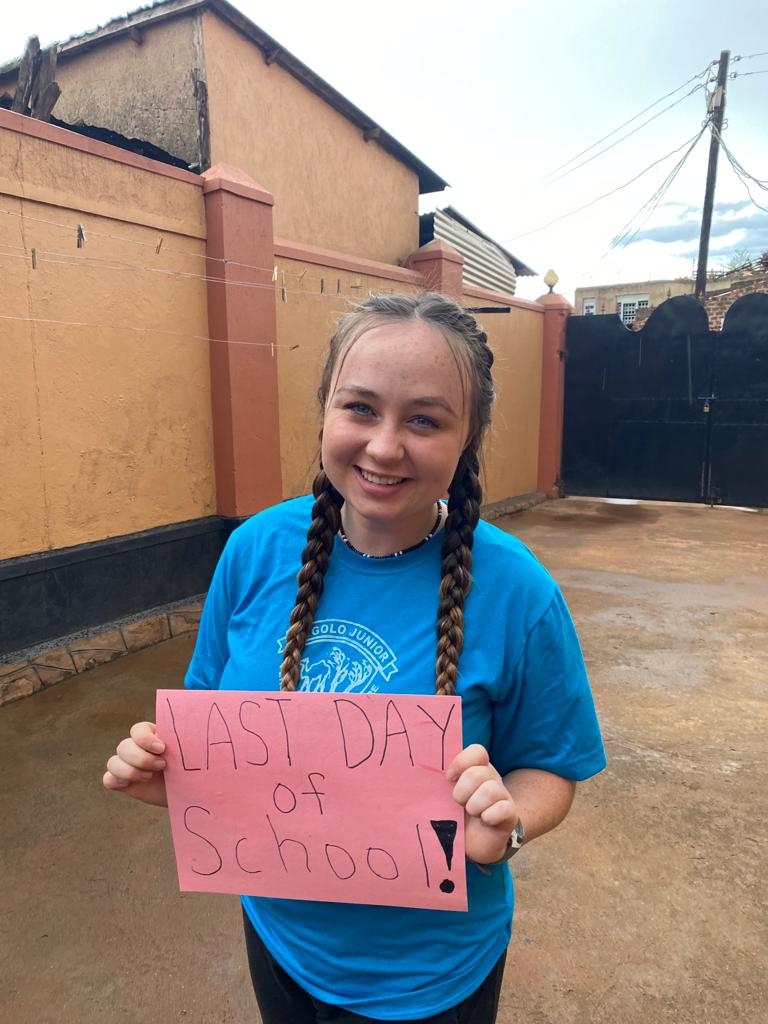 GOLO JUNIOR
LAST DAY
of
School!